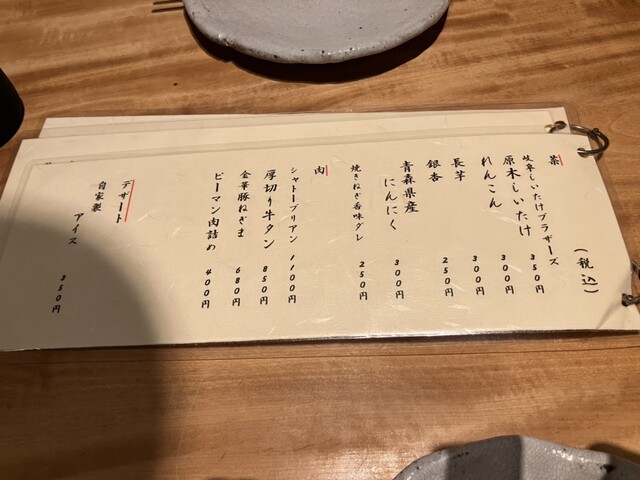 (税込)
菜
岐阜しいたけブラザーズ 350円
原木しいたけ 300円
れんこん 300円
長芋 250円
銀杏
青森県産
にんにく 300円
焼きねぎ香味ダレ 250円
肉
シャトーブリアン 1100円
厚切り牛タン 850円
金華豚ねぎま 680円
ピーマン肉詰め 400円
デザート
自家製
アイス 350円